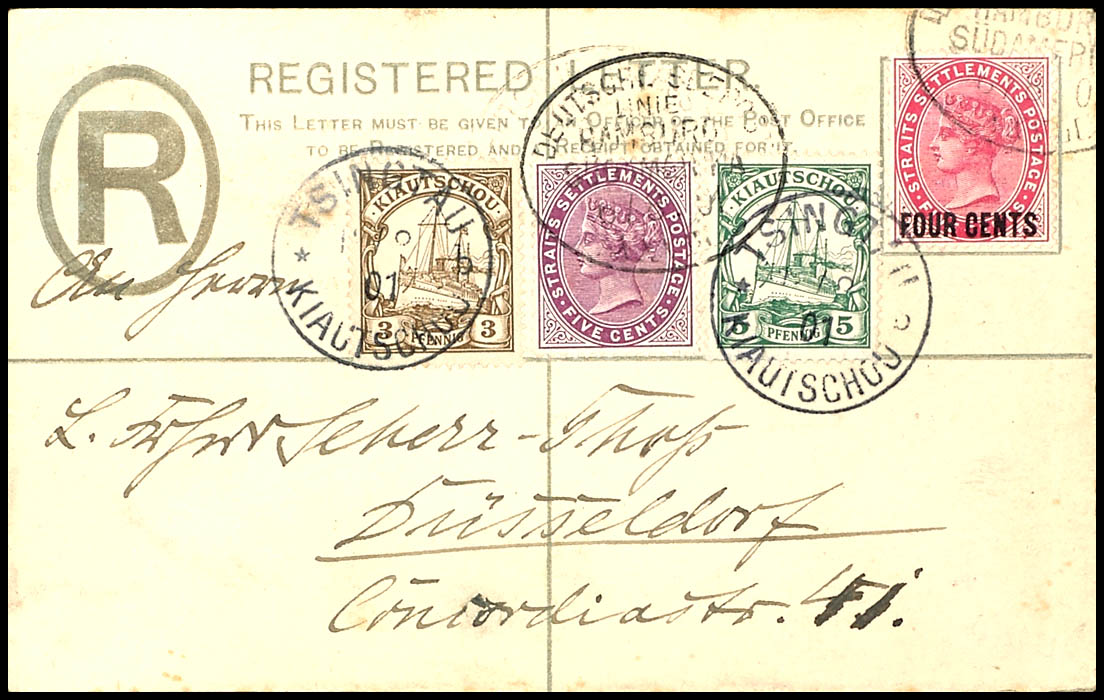 R
REGISTERED LETTER.
THIS LETTER MUST BE GIVEN TO AN OFFICER OF THE POST OFFICE
TO BE REGISTERED AND A RECEIPT OBTAINED FOR IT.
DEUTSCHE
LINIE
HAMBURG
HAMBUR
SÜDAMER
STRAITS SETTLEMENTS POSTAGE
FOUR CENTS
TSINGTAU
01
KIAUTSCHOU
KIAUTSCHOU
3 3
PFENNIG
STRAITS SETTLEMENTS POSTAGE
FIVE CENTS
KIAUTSCHOU
5 5
PFENNIG
TSINGTAU
01
KIAUTSCHOU
An Herrn
L. Frhr Scherr-Thoß
Düsseldorf
Concordiastr.